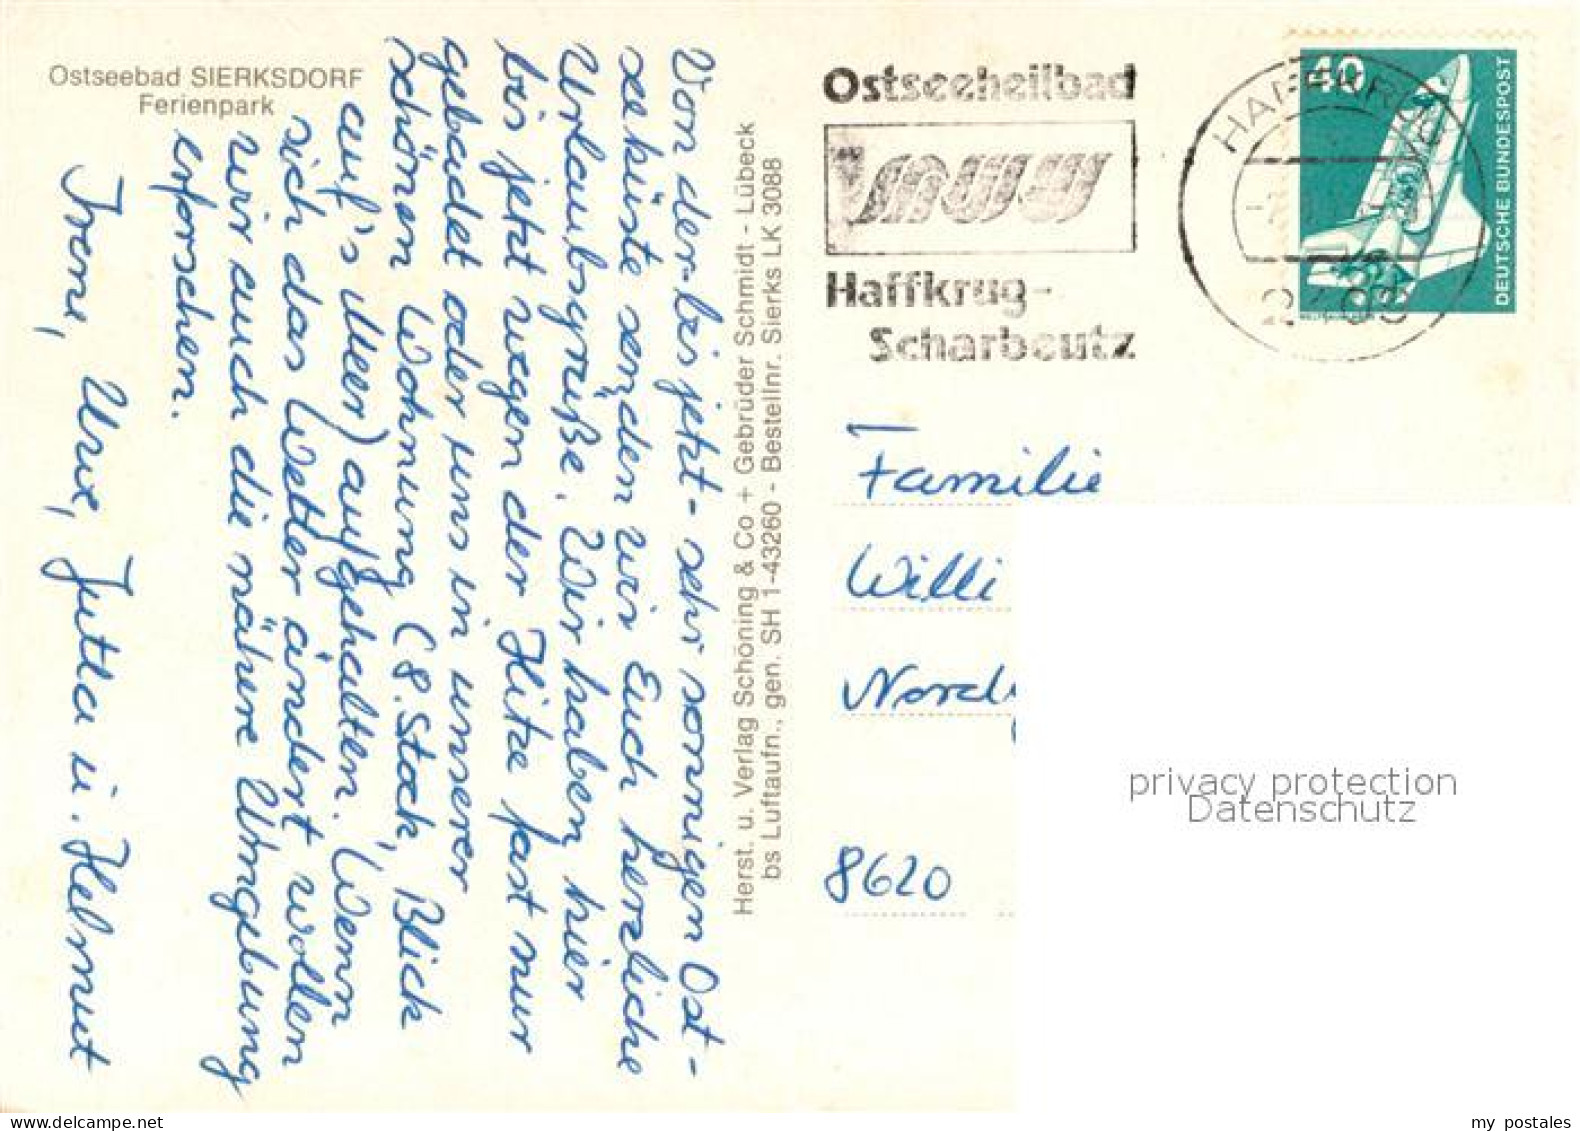 Ostseebad SIERKSDORF
Ferienpark
Von der-bis jetzt- sehr sonnigen Ost-
seeküste senden wir Euch herzliche
Urlaubsgrüße. Wir haben hier
bis jetzt wegen der Hitze fast nur
gebadet oder uns in unserer
schönen Wohnung (8. Stock, Blick
auf's Meer) aufgehalten. Wenn
sich das Wetter ändert wollen
wir auch die nähere Umgebung
erforschen.
Irene, Uwe, Jutta u. Helmut
Herst. u. Verlag Schöning & Co + Gebrüder Schmidt - Lübeck
bs Luftaufn., gen. SH 1-43260 - Bestellnr. Sierks LK 3088
Ostseeheilbad
Haffkrug-
Scharbeutz
40
DEUTSCHE BUNDESPOST
Familie
Willi
8620
privacy protection
Datenschutz
my postales